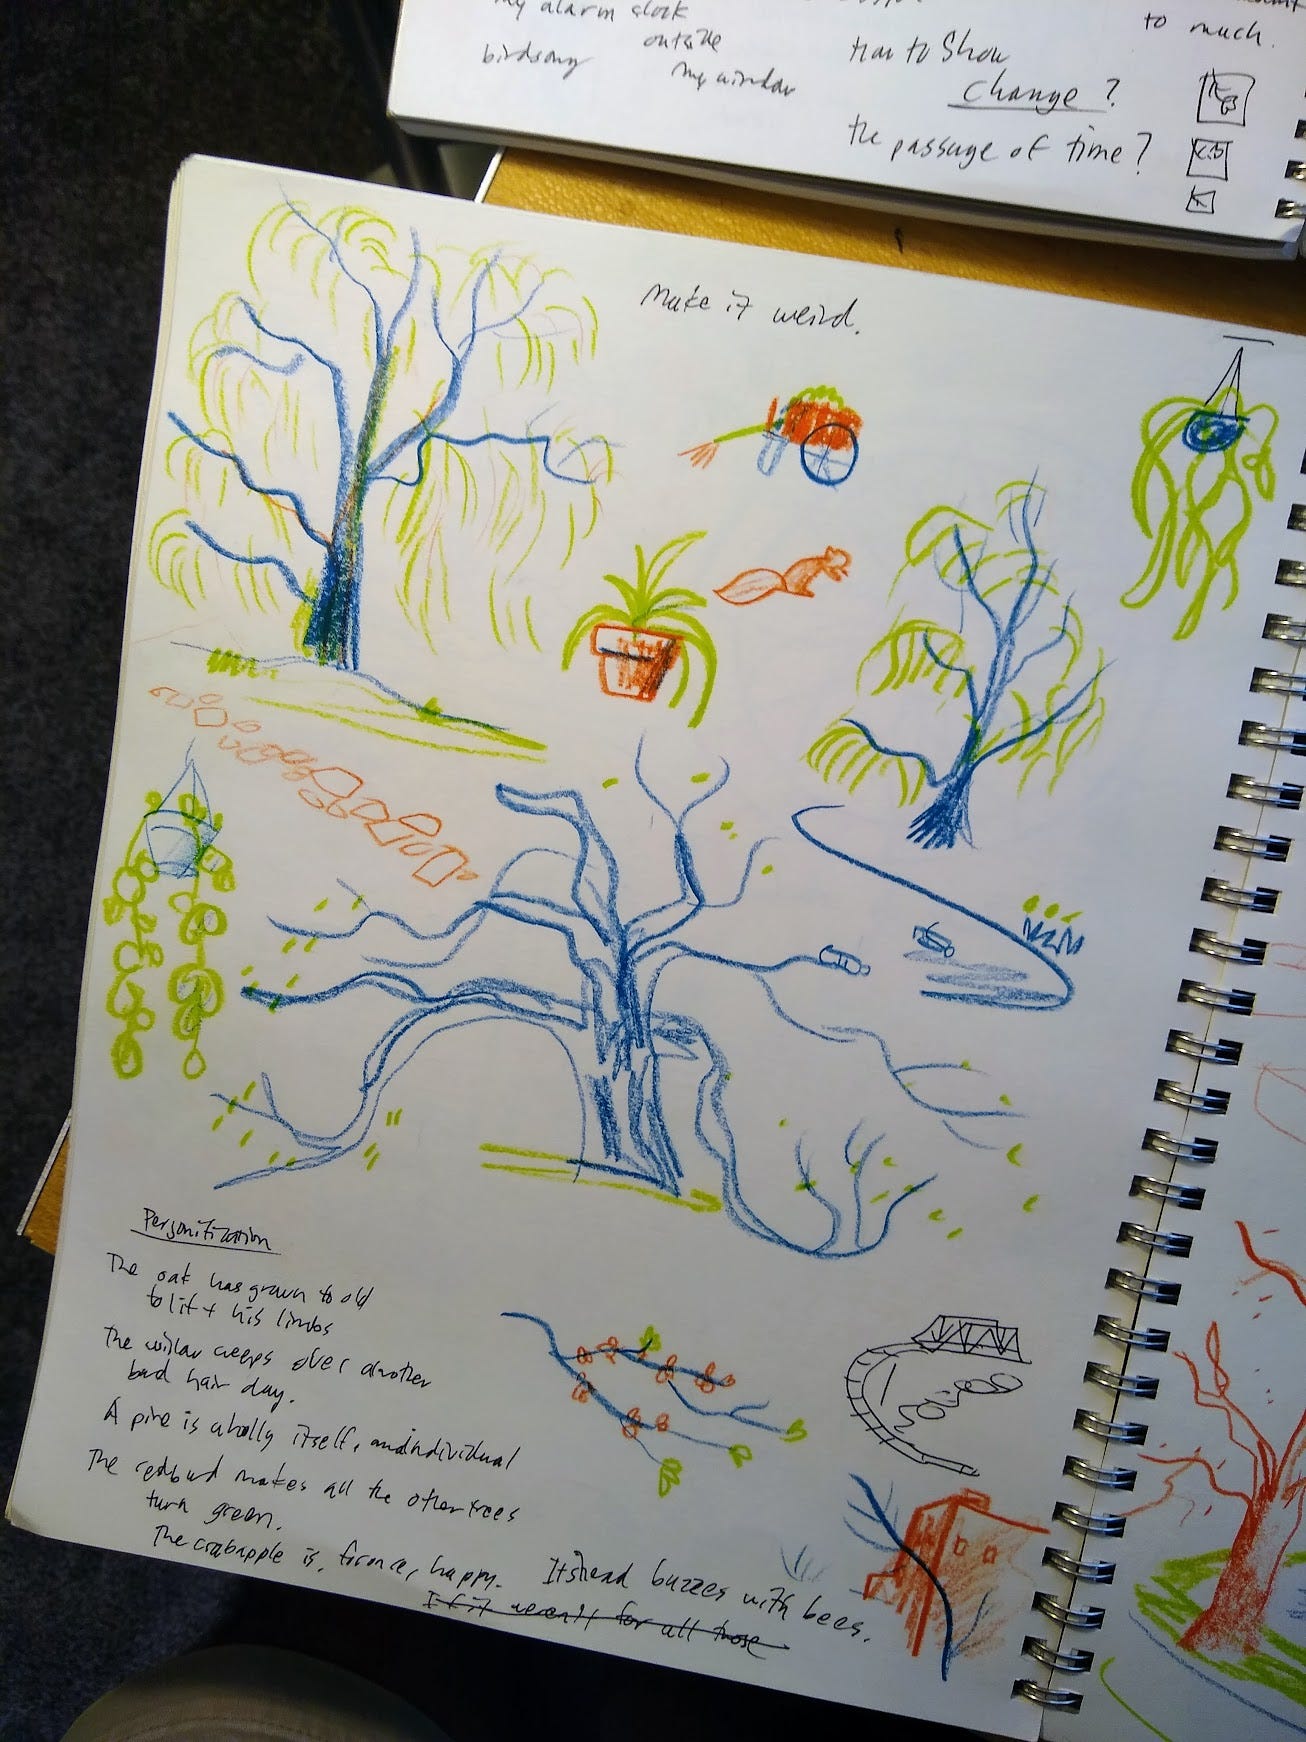 my alarm clock
outside
birdsong
my window
to much.
how to Show
change?
the passage of time?
Make it weird.
Personifization
The oak has grown to old
to lift his limbs
The willow weeps over another
bad hair day.
A pine is wholly itself, an individual
The redbud makes all the other trees
turn green.
The crabapple is, for once, happy. Its head buzzes with bees.
If it weren't for all those